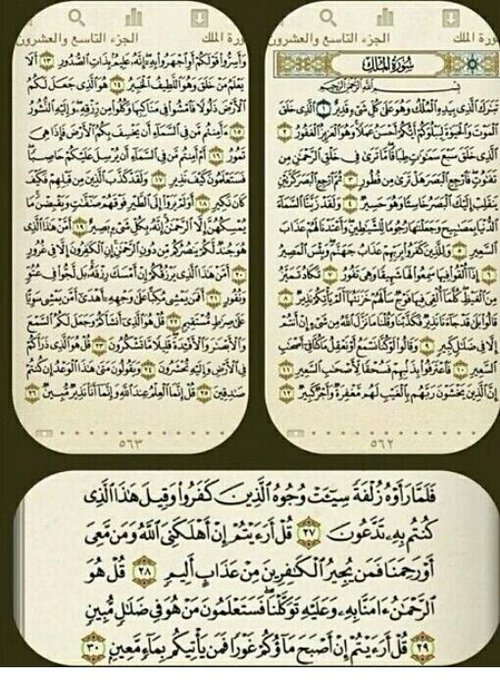 ورة الملك الجزء التاسع والعشرون
سُورَةُ المُلكِ
بِسْمِ اللَّهِ الرَّحْمَٰنِ الرَّحِيمِ
تَبَٰرَكَ الَّذِي بِيَدِهِ الْمُلْكُ وَهُوَ عَلَىٰ كُلِّ شَيْءٍ قَدِيرٌ ١ الَّذِي خَلَقَ
الْمَوْتَ وَالْحَيَوٰةَ لِيَبْلُوَكُمْ أَيُّكُمْ أَحْسَنُ عَمَلًا وَهُوَ الْعَزِيزُ الْغَفُورُ ٢
الَّذِي خَلَقَ سَبْعَ سَمَٰوَٰتٍ طِبَاقًا مَّا تَرَىٰ فِي خَلْقِ الرَّحْمَٰنِ مِن
تَفَٰوُتٍ فَارْجِعِ الْبَصَرَ هَلْ تَرَىٰ مِن فُطُورٍ ٣ ثُمَّ ارْجِعِ الْبَصَرَ كَرَّتَيْنِ
يَنقَلِبْ إِلَيْكَ الْبَصَرُ خَاسِئًا وَهُوَ حَسِيرٌ ٤ وَلَقَدْ زَيَّنَّا السَّمَاءَ
الدُّنْيَا بِمَصَٰبِيحَ وَجَعَلْنَٰهَا رُجُومًا لِّلشَّيَٰطِينِ وَأَعْتَدْنَا لَهُمْ عَذَابَ
السَّعِيرِ ٥ وَلِلَّذِينَ كَفَرُوا بِرَبِّهِمْ عَذَابُ جَهَنَّمَ وَبِئْسَ الْمَصِيرُ
٦ إِذَا أُلْقُوا فِيهَا سَمِعُوا لَهَا شَهِيقًا وَهِيَ تَفُورُ ٧ تَكَادُ تَمَيَّزُ
مِنَ الْغَيْظِ كُلَّمَا أُلْقِيَ فِيهَا فَوْجٌ سَأَلَهُمْ خَزَنَتُهَا أَلَمْ يَأْتِكُمْ نَذِيرٌ ٨
قَالُوا بَلَىٰ قَدْ جَاءَنَا نَذِيرٌ فَكَذَّبْنَا وَقُلْنَا مَا نَزَّلَ اللَّهُ مِن شَيْءٍ إِنْ أَنتُمْ
إِلَّا فِي ضَلَٰلٍ كَبِيرٍ ٩ وَقَالُوا لَوْ كُنَّا نَسْمَعُ أَوْ نَعْقِلُ مَا كُنَّا فِي أَصْحَٰبِ
السَّعِيرِ ١٠ فَاعْتَرَفُوا بِذَنبِهِمْ فَسُحْقًا لِّأَصْحَٰبِ السَّعِيرِ ١١
إِنَّ الَّذِينَ يَخْشَوْنَ رَبَّهُم بِالْغَيْبِ لَهُم مَّغْفِرَةٌ وَأَجْرٌ كَبِيرٌ ١٢
٥٦٢
ورة الملك الجزء التاسع والعشرون
وَأَسِرُّوا قَوْلَكُمْ أَوِ اجْهَرُوا بِهِ إِنَّهُ عَلِيمٌ بِذَاتِ الصُّدُورِ ١٣ أَلَا
يَعْلَمُ مَنْ خَلَقَ وَهُوَ اللَّطِيفُ الْخَبِيرُ ١٤ هُوَ الَّذِي جَعَلَ لَكُمُ
الْأَرْضَ ذَلُولًا فَامْشُوا فِي مَنَاكِبِهَا وَكُلُوا مِن رِّزْقِهِ وَإِلَيْهِ النُّشُورُ
١٥ ءَأَمِنتُم مَّن فِي السَّمَاءِ أَن يَخْسِفَ بِكُمُ الْأَرْضَ فَإِذَا هِيَ
تَمُورُ ١٦ أَمْ أَمِنتُم مَّن فِي السَّمَاءِ أَن يُرْسِلَ عَلَيْكُمْ حَاصِبًا
فَسَتَعْلَمُونَ كَيْفَ نَذِيرِ ١٧ وَلَقَدْ كَذَّبَ الَّذِينَ مِن قَبْلِهِمْ فَكَيْفَ
كَانَ نَكِيرِ ١٨ أَوَلَمْ يَرَوْا إِلَى الطَّيْرِ فَوْقَهُمْ صَٰفَّٰتٍ وَيَقْبِضْنَ مَا
يُمْسِكُهُنَّ إِلَّا الرَّحْمَٰنُ إِنَّهُ بِكُلِّ شَيْءٍ بَصِيرٌ ١٩ أَمَّنْ هَٰذَا الَّذِي
هُوَ جُندٌ لَّكُمْ يَنصُرُكُم مِّن دُونِ الرَّحْمَٰنِ إِنِ الْكَٰفِرُونَ إِلَّا فِي غُرُورٍ
٢٠ أَمَّنْ هَٰذَا الَّذِي يَرْزُقُكُمْ إِنْ أَمْسَكَ رِزْقَهُ بَل لَّجُّوا فِي عُتُوٍّ
وَنُفُورٍ ٢١ أَفَمَن يَمْشِي مُكِبًّا عَلَىٰ وَجْهِهِ أَهْدَىٰ أَمَّن يَمْشِي سَوِيًّا
عَلَىٰ صِرَٰطٍ مُّسْتَقِيمٍ ٢٢ قُلْ هُوَ الَّذِي أَنشَأَكُمْ وَجَعَلَ لَكُمُ السَّمْعَ
وَالْأَبْصَٰرَ وَالْأَفْـِٔدَةَ قَلِيلًا مَّا تَشْكُرُونَ ٢٣ قُلْ هُوَ الَّذِي ذَرَأَكُمْ
فِي الْأَرْضِ وَإِلَيْهِ تُحْشَرُونَ ٢٤ وَيَقُولُونَ مَتَىٰ هَٰذَا الْوَعْدُ إِن كُنتُمْ
صَٰدِقِينَ ٢٥ قُلْ إِنَّمَا الْعِلْمُ عِندَ اللَّهِ وَإِنَّمَا أَنَا نَذِيرٌ مُّبِينٌ ٢٦
٥٦٣
فَلَمَّا رَأَوْهُ زُلْفَةً سِيـَٔتْ وُجُوهُ الَّذِينَ كَفَرُوا وَقِيلَ هَٰذَا الَّذِي
كُنتُم بِهِ تَدَّعُونَ ٢٧ قُلْ أَرَءَيْتُمْ إِنْ أَهْلَكَنِيَ اللَّهُ وَمَن مَّعِيَ
أَوْ رَحِمَنَا فَمَن يُجِيرُ الْكَٰفِرِينَ مِنْ عَذَابٍ أَلِيمٍ ٢٨ قُلْ هُوَ
الرَّحْمَٰنُ ءَامَنَّا بِهِ وَعَلَيْهِ تَوَكَّلْنَا فَسَتَعْلَمُونَ مَنْ هُوَ فِي ضَلَٰلٍ مُّبِينٍ
٢٩ قُلْ أَرَءَيْتُمْ إِنْ أَصْبَحَ مَاؤُكُمْ غَوْرًا فَمَن يَأْتِيكُم بِمَاءٍ مَّعِينٍ ٣٠